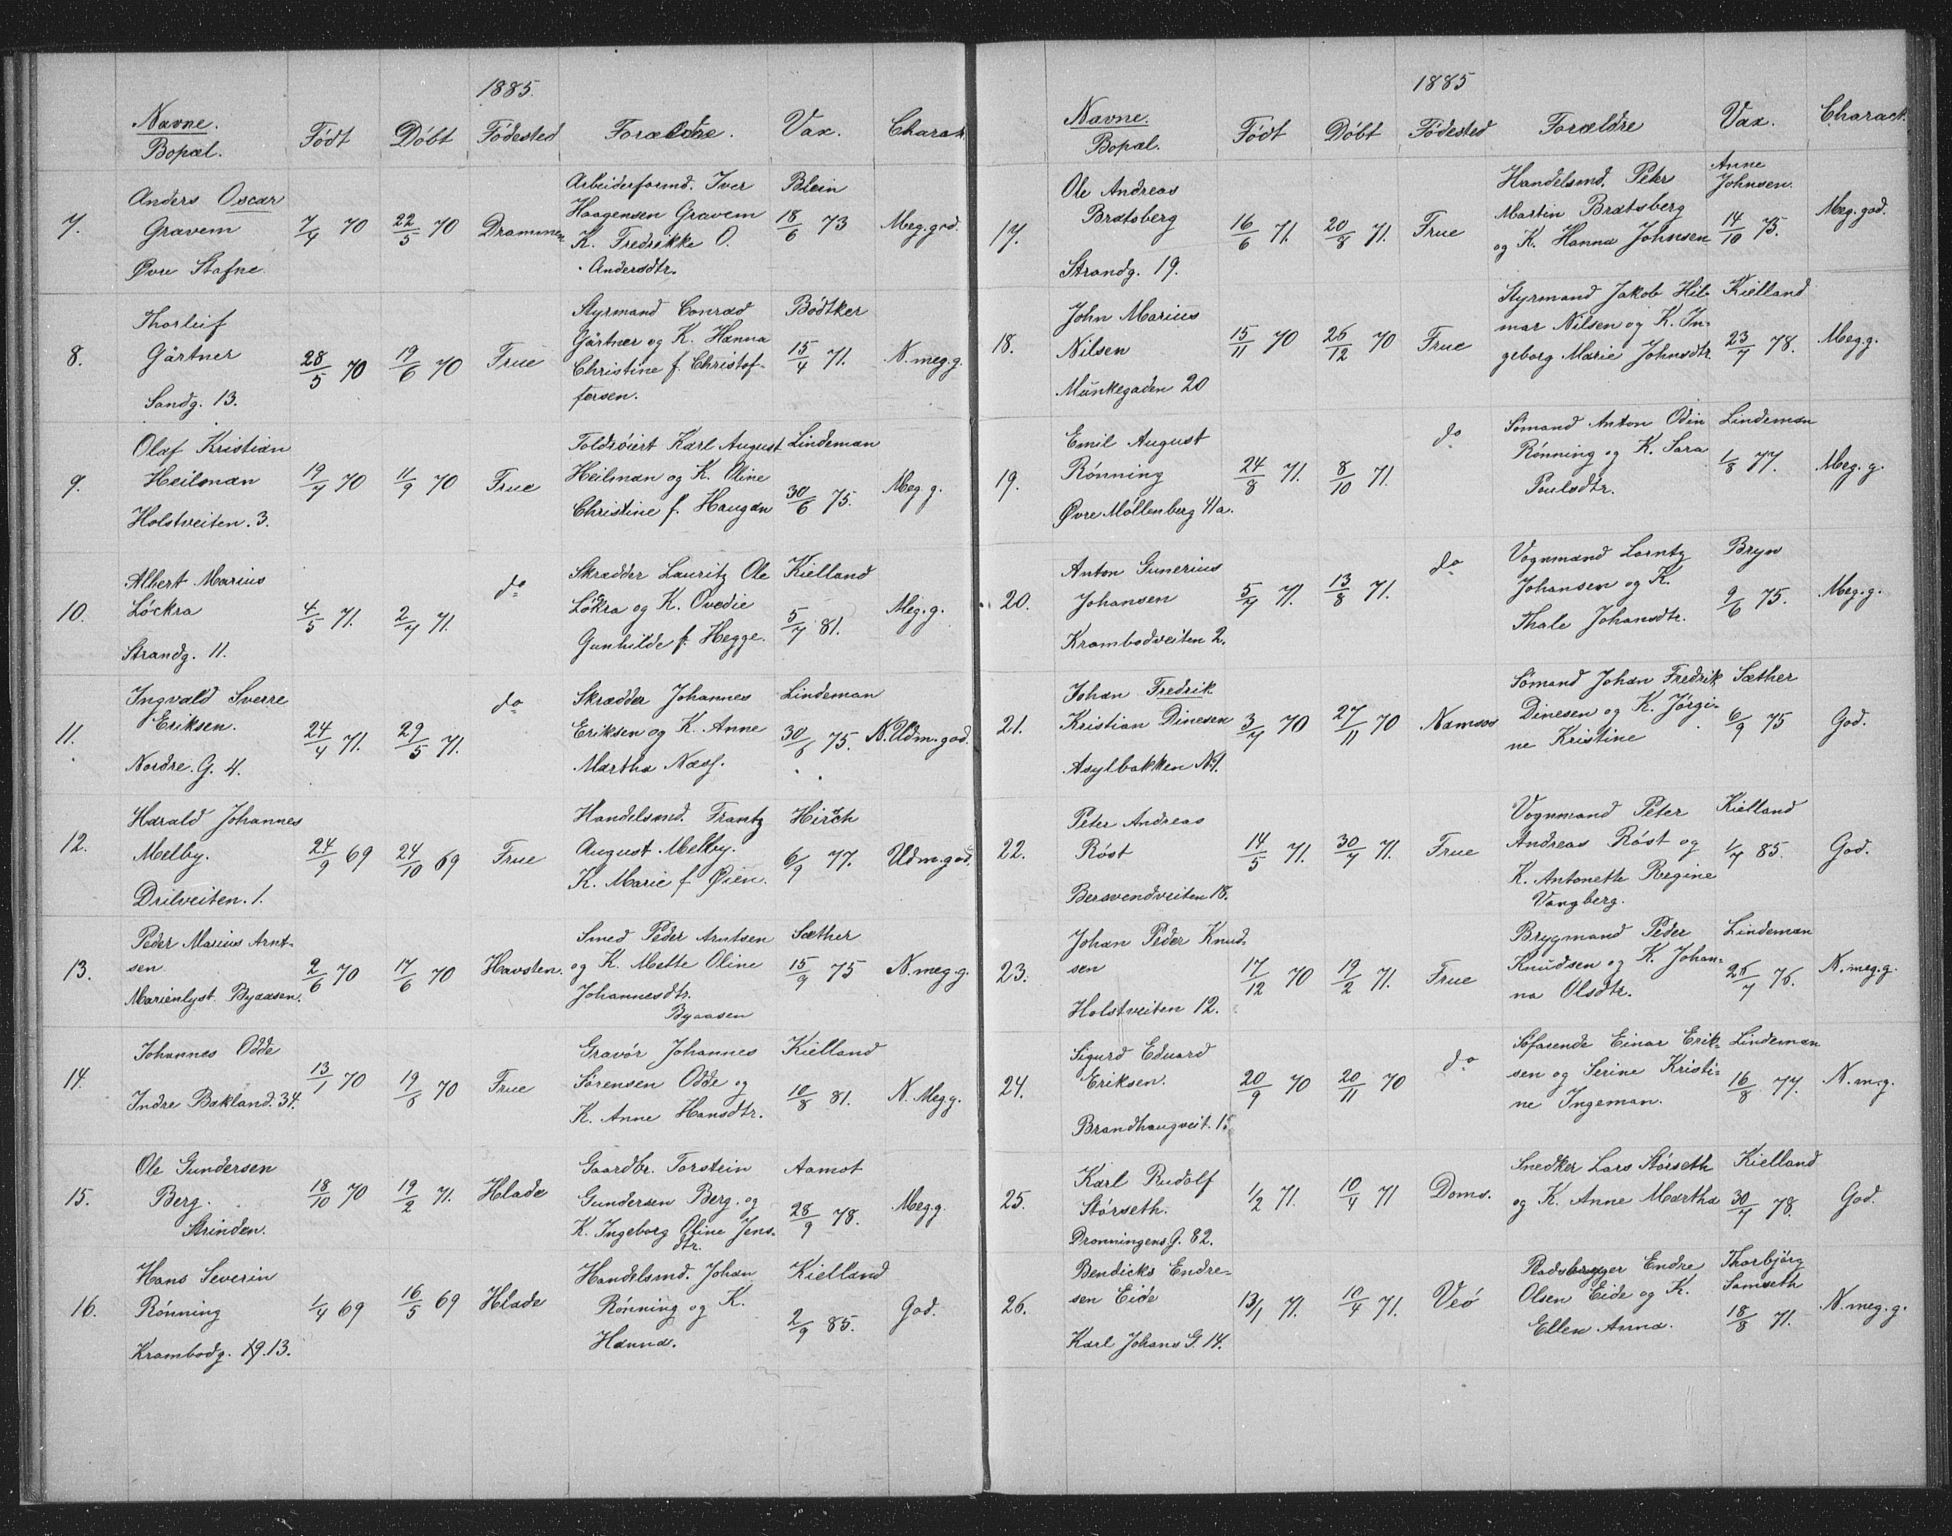 1885.
Navne.
Bopæl.
Født
Døbt
Fødested
Forældre.
Vax.
Charak
7.
Anders Oscar
Gravem
Øvre Stafne.
7/4 70
22/5 70
Drammen
Arbeiderformd. Iver
Haagensen Gravem
K. Fredrikke O.
Andersdtr.
Blein
18/6 73
Meg. god.
8.
Thorleif
Gårtner
Sandg. 13.
28/5 70
19/6 70
Frue
Styrmand Conrad
Gårtner og K. Hanna
Christine f. Christof-
fersen.
Bødtker
15/4 71.
N. meg. g.
9.
Olaf Kristian
Heilman
Holstveiten. 3.
19/7 70
11/9 70
Frue
Toldroiert Karl August
Heilman og K. Oline
Christine f. Haugan
Lindeman
30/6 75.
Meg. g.
10.
Albert Marius
Löckra
Strandg. 11.
4/5 71.
2/7 71.
do
Skrædder Lauritz Ole
Lökra og K. Ovedie
Gunhilde f. Hegge.
Kielland
5/7 81.
Meg. g.
11.
Ingvald Sverre
Eriksen.
Nordre. G. 4.
24/4 71.
29/5 71.
do
Skrædder Johannes
Eriksen og K. Anne
Martha Næss.
Lindeman
30/6 75.
N. Udm. god.
12.
Harald Johannes
Melby.
Drilveiten. 1.
24/9 69
24/10 69
Frue
Handelsmd. Frantz
August Melby.
K. Marie f. Øien.
Hirch
6/9 77.
Udm. god.
13.
Peder Marius Arnt-
sen
Marienlyst. Byaasen.
2/6 70
17/6 70
Havsten.
Smed Peder Arntsen
og K. Mette Oline
Johannesdtr.
Byaasen
Sæther
15/9 75
N. meg. g.
14.
Johannes Odde
Indre Bakland. 34.
13/1 70
19/6 70
Frue
Gravør Johannes
Sørensen Odde og
K. Anne Hansdtr.
Kielland
10/8 81.
N. Meg. g.
15.
Ole Gundersen
Berg.
Strinden.
18/10 70
19/2 71.
Hlade
Gaardbr. Torstein
Gundersen Berg. og
K. Ingeborg Oline Jens-
dtr.
Aamot
28/9 78.
Meg. g.
16.
Hans Severin
Rønning
Krambodg. 13.
1/4 69
16/5 69
Hlade
Handelsmd. Johan
Rønning og K.
Hanna.
Kielland
2/9 85.
God.
1885
Navne.
Bopæl.
Født
Døbt
Fødested
Forældre
Vax.
Charact.
17.
Ole Andreas
Bratsberg
Strandg. 19.
16/6 71.
20/8 71.
Frue
Handelsmd. Peter
Martin Bratsberg
og K. Hanna Johnsen
Anne
Johnsen.
14/10 75.
Meg. god.
18.
John Marius
Nilsen
Munkegaden 20
15/11 70
26/12 70
Frue
Styrmand Jakob Hil-
mar Nilsen og K. In-
geborg Marie Johnsdtr.
Kielland
23/7 78.
Meg. g.
19.
Emil August
Rønning
Øvre Møllenberg 41a.
24/8 71.
8/10 71.
do
Sømand Anton Odin
Rønning og K. Sara
Poulsdtr.
Lindeman
1/8 77.
Meg. g.
20.
Anton Gunerius
Johansen
Krambodveiten 2.
5/7 71.
13/8 71.
do
Vognmand Lorntz
Johansen og K.
Thale Johansdtr.
Bryn
9/6 75.
Meg. g.
21.
Johan Fredrik
Kristian Dinesen
Asylbakken N1.
3/7 70
27/11 70
Namsos
Sømand Johan Fredrik
Dinesen og K. Jørgi-
ne Kristine
Sæther
6/9 75
God.
22.
Peter Andreas
Røst
Bersvendveiten 18.
14/5 71.
30/7 71.
Frue
Vognmand Peter
Andreas Røst og
K. Antonette Regine
Vangberg.
Kielland
1/7 85.
God.
23.
Johan Peder Knud-
sen
Holstveiten 12.
17/12 70
19/2 71.
Frue
Brygmand Peder
Knudsen og K. Johan-
na Olsdtr.
Lindeman
26/7 76.
N. meg. g.
24.
Sigurd Eduard
Eriksen.
Brandhaugveit. 1.
20/9 70
20/11 70
do
Søfarende Einar Erik-
sen og Serine Kristi-
ne Ingeman.
Lindeman
16/8 77.
N. m. g.
25.
Karl Rudolf
Störseth.
Dronningens G. 82.
1/2 71.
10/4 71
Doms.
Snedker Lars Störseth
og K. Anne Martha
Kielland
30/7 78.
God.
26.
Bendicks Endre-
sen Eide
Karl Johans G. 14.
13/1 71.
10/4 71.
Veø
Endre
Olsen Eide og K.
Ellen Anna.
Thorbjörg
Samseth
18/8 71.
N. meg. g.